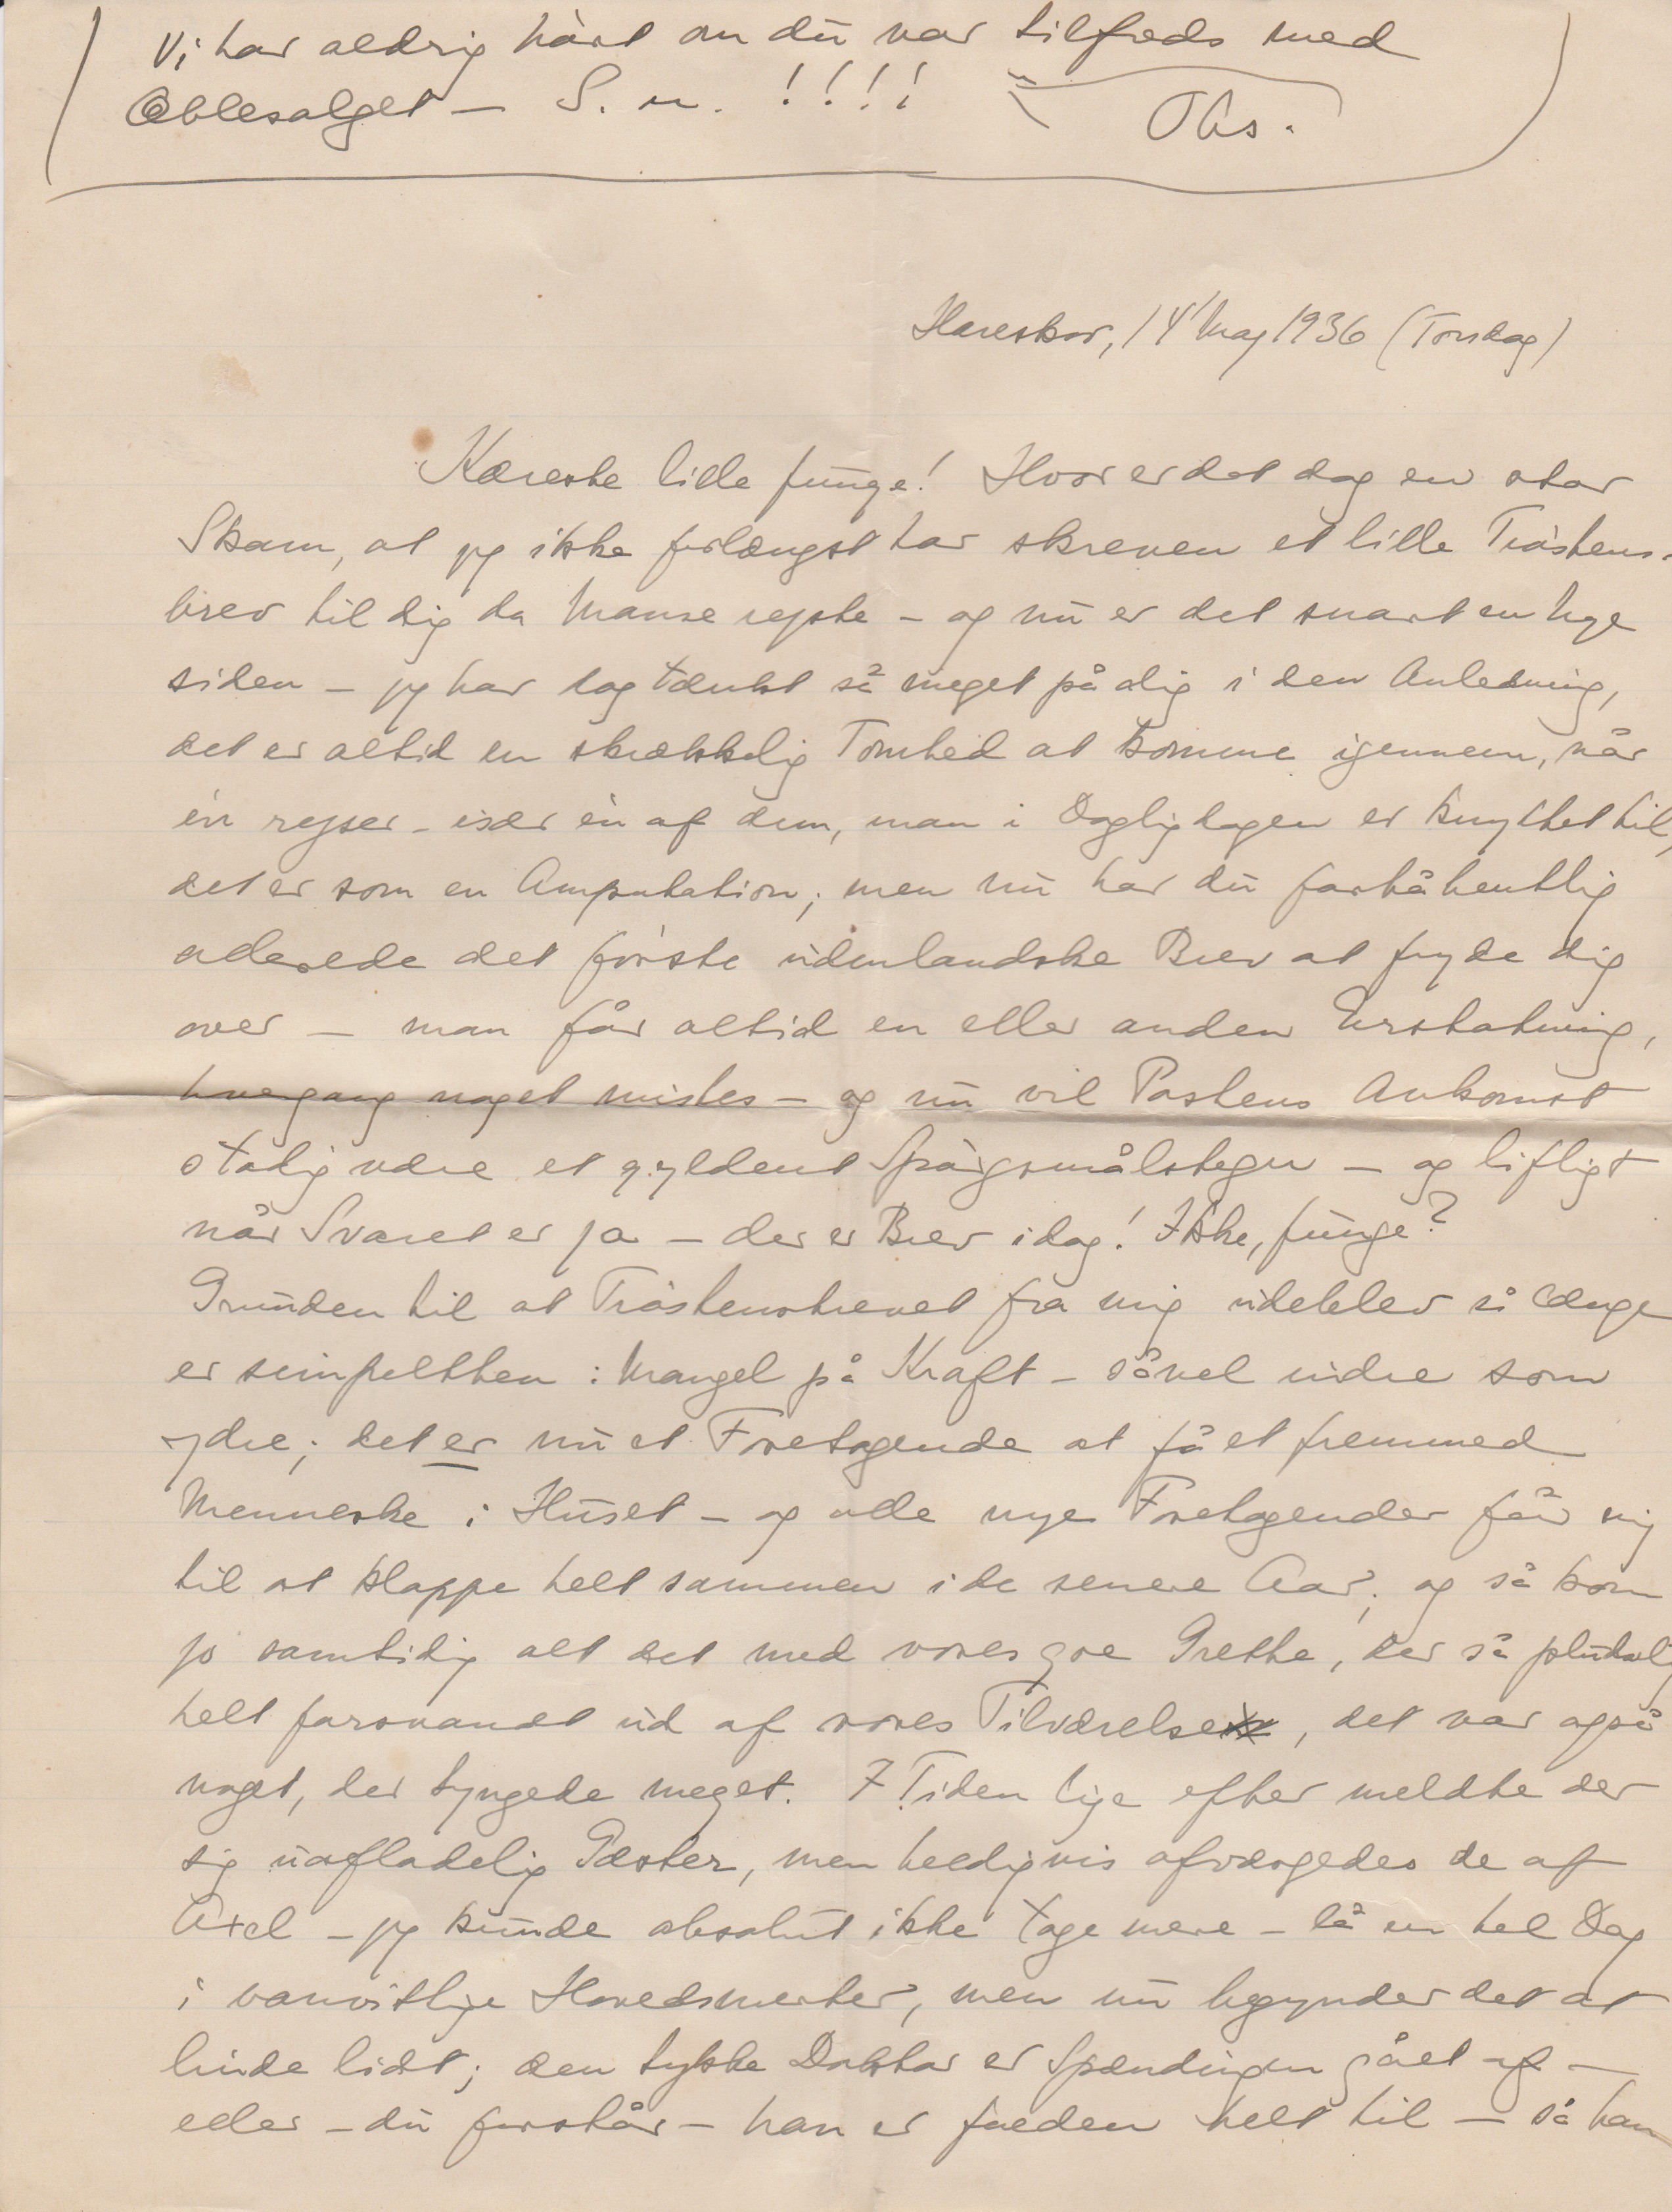 Vi har aldrig hört om du var tilfreds med
Æblesalget – S. u. !!!!
Obs.
Hareskov, 14' Maj 1936 (Torsdag)
Kæreste lille Junge! Hvor er det dog en stor
Skam, at jeg ikke forlængst har skreven et lille Tröstens-
brev til dig da Manse rejste – og nu er det snart en Uge
siden – jeg har dog tænkt så meget på dig i den Anledning,
det er altid en skrækkelig Tomhed at komme igennem, når
én rejser – især én af dem, man i Dagligdagen er knyttet til,
det er som en Amputation; men nu har du forhåbentlig
allerede det første udenlandske Brev at fryde dig
over – man får altid en eller anden Erstatning,
hvergang noget mistes – og nu vil Postens Ankomst
stadig være et gyldent Spörgsmålstegn – og lifligt
når Svaret er ja – der er Brev idag! Ikke, Junge?
Grunden til at Tröstensbrevet fra mig udeblev så længe
er simpelthen: Mangel på Kraft – såvel indre som
ydre; det er nu et Foretagende at få et fremmed
Menneske i Huset – og alle nye Foretagender får mig
til at klappe helt sammen i de senere Aar; og så kom
jo samtidig alt det med vores goe Grethe, der så pludselig
helt forsvandt ud af vores Tilværelse, det var også
noget, der tyngede meget. I Tiden lige efter meldte der
sig uafladelig Gæster, men heldigvis afværgedes de af
Axel – jeg kunde absolut ikke tage mere – lå en hel Dag
i vanvittige Hovedsmerter, men nu begynder det at
linde lidt; den tykke Doktor er Spændingen gået af –
eller – du forstår – han er falden helt til – så han